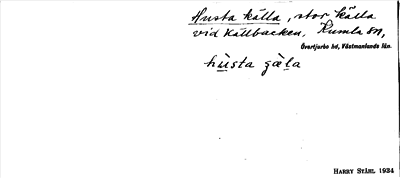 Husta källa, stor källa
vid Källbacken, Kumla sn,
Övertjurbo hd, Västmanlands län.
hùsta gæ̀la
HARRY STÅHL 1934